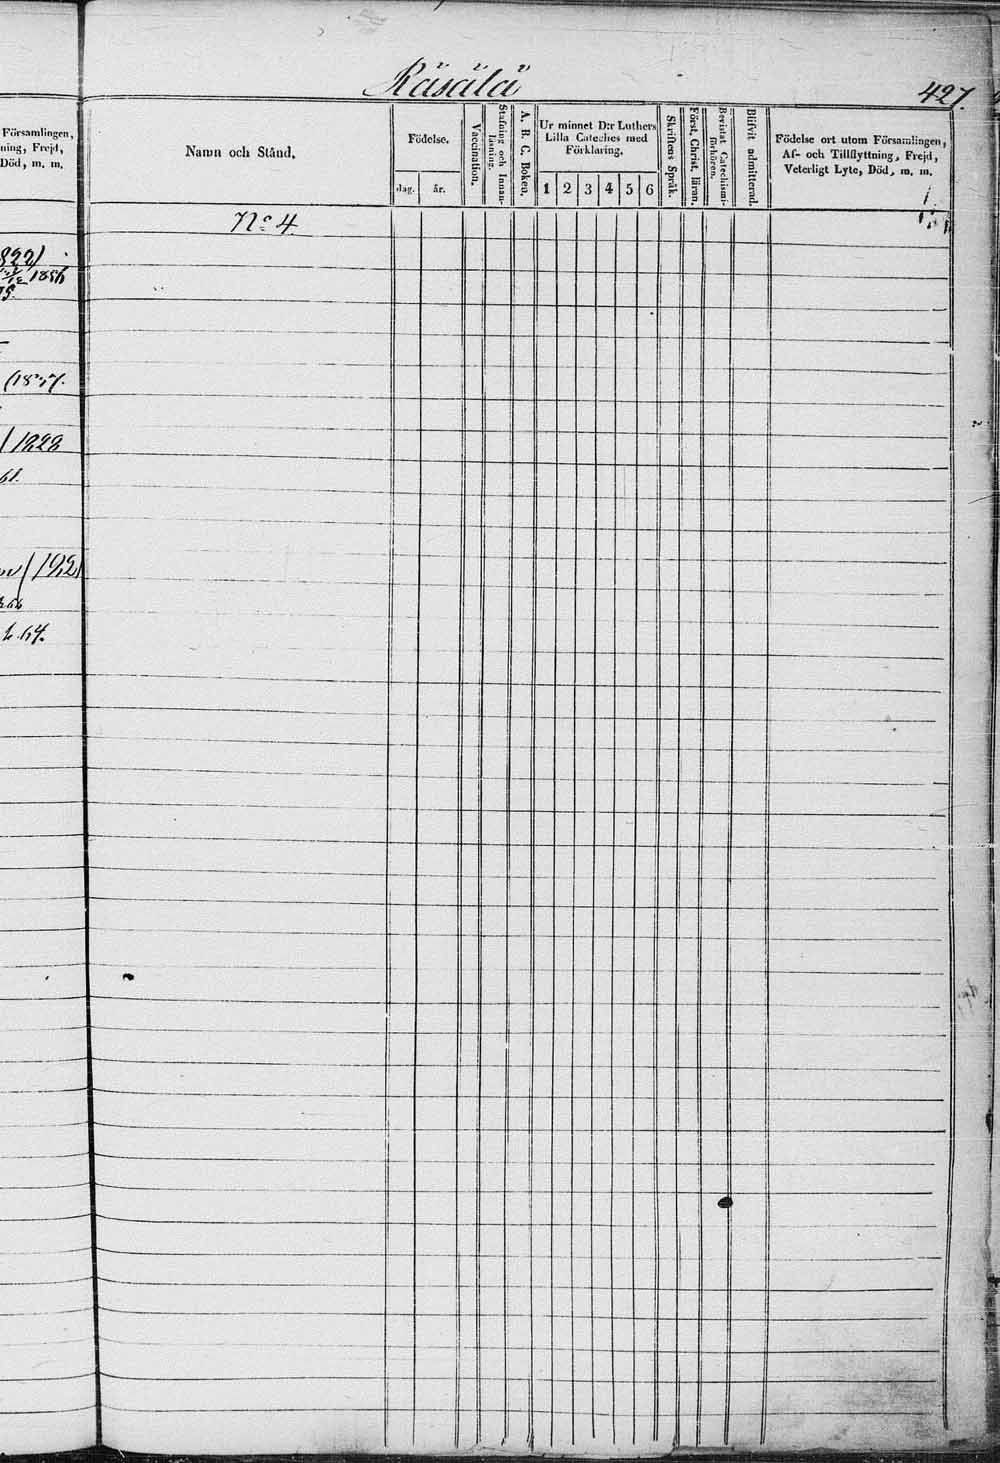 Räsälä
427.
Församlingen,
ning, Frejd,
Död, m. m.
Namn och Stånd.
Födelse.
dag.
år.
Vaccination.
Stafning och Innan-
läsning.
A. B. C. Boken.
Ur minnet D:r Luthers
Lilla Cateches med
Förklaring.
1 2 3 4 5 6
Skriftens Språk.
Först. Christ. läran.
Bevistat Catechismi-
förhören.
Blifvit admitterad.
Födelse ort utom Församlingen,
Af- och Tillflyttning, Frejd,
Veterligt Lyte, Död, m. m.
No 4.
822)
1856
75.
(1837.
/1828
61.
64.